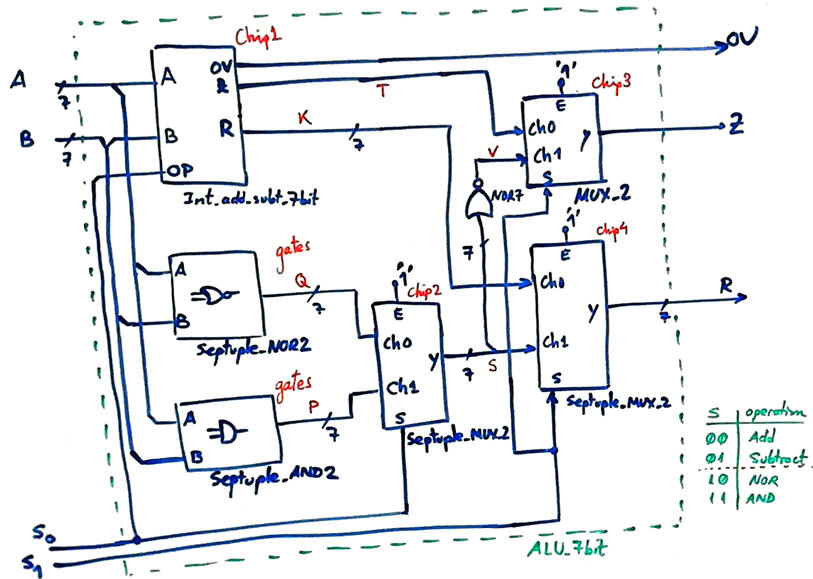 Chip1
OV
A
7
A
OV
Z
T
'1'
Chip3
E
B
7
B
R
K
7
Ch0
y
Z
V
Ch1
OP
S
NOR7
MUX_2
Int_add_subt_7bit
'1'
chip4
gates
7
E
A
Q
7
'1'
chip2
Ch0
E
R
B
Ch0
y
7
Septuple_NOR2
y
7
S
Ch1
gates
Ch1
P
A
7
S
S
Septuple_MUX_2
B
Septuple_MUX_2
Septuple_AND2
S operation
00 Add
01 Subtract
10 NOR
11 AND
S0
S1
ALU_7bit